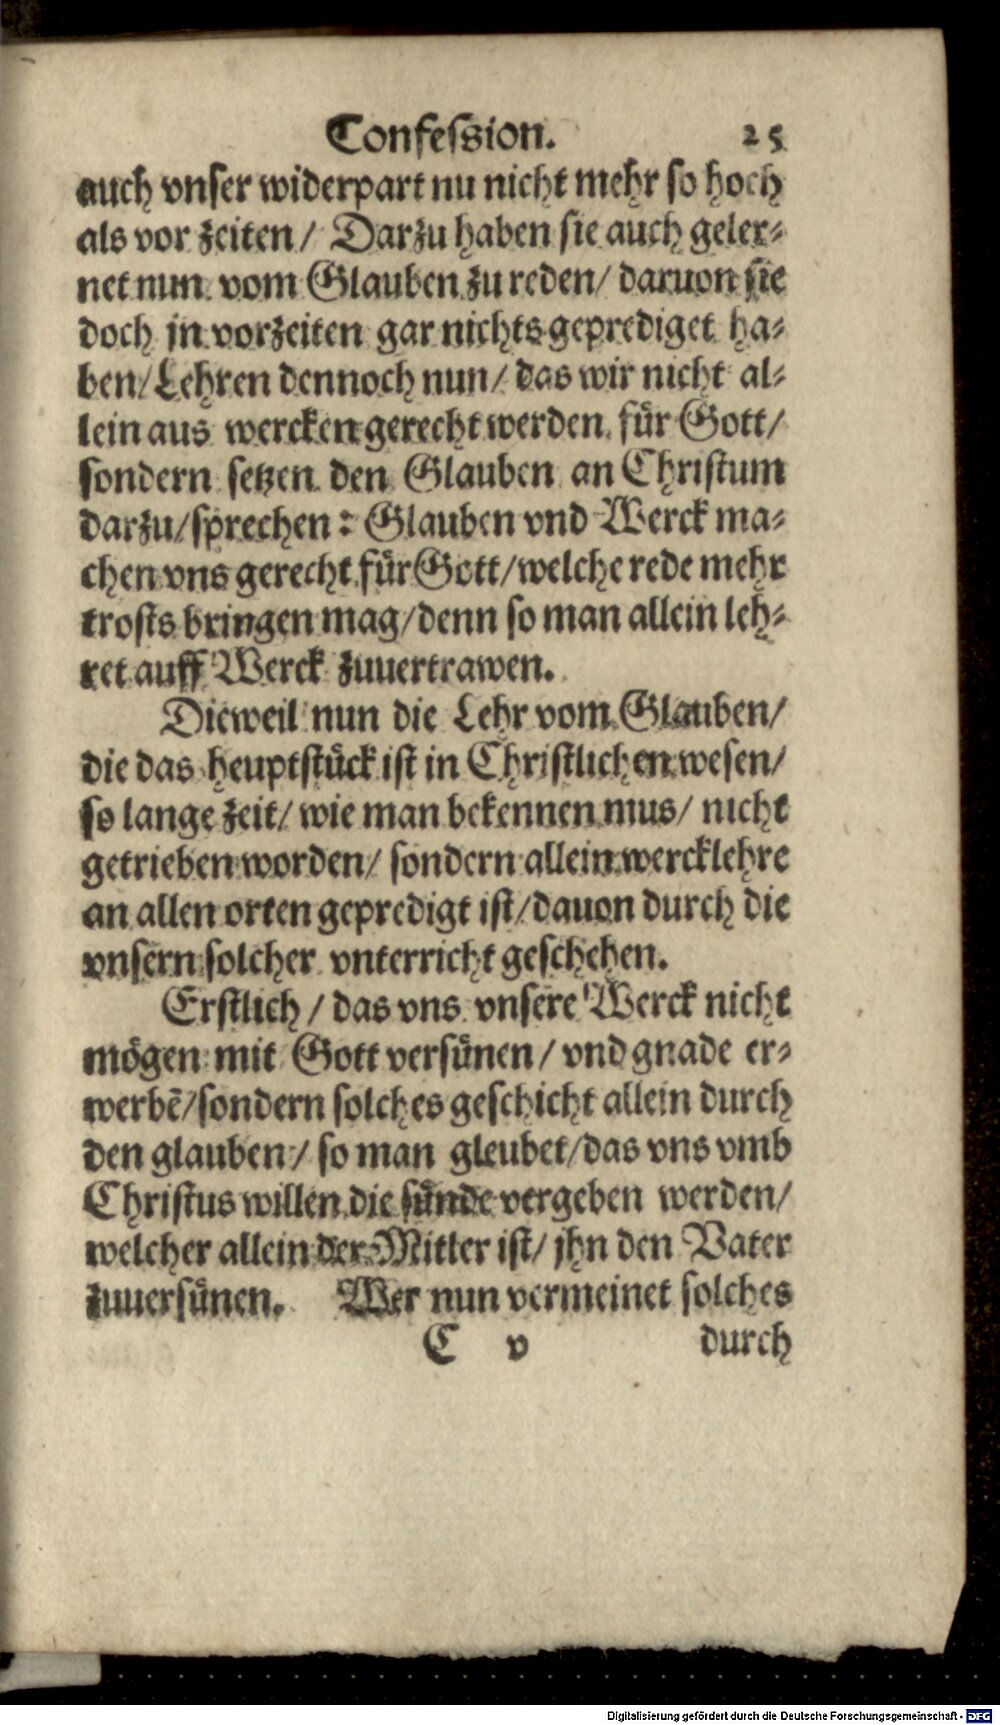 Confeſsion. 25
auch vnſer widerpart nu nicht mehr ſo hoch
als vor zeiten/ Darzu haben ſie auch geler⸗
net nun vom Glauben zu reden/ daruon ſie
doch in vorzeiten gar nichts geprediget ha⸗
ben/ Lehren dennoch nun/ das wir nicht al⸗
lein aus wercken gerecht werden fuͤr Gott/
ſondern ſetzen den Glauben an Chriſtum
darzu/ ſprechen: Glauben vnd Werck ma⸗
chen vns gerecht fuͤr Gott/ welche rede mehr
troſts bringen mag/ denn ſo man allein leh⸗
ret auff Werck zuuertrawen.
Dieweil nun die Lehr vom Glauben/
die das heuptſtuͤck iſt in Chriſtlichen weſen/
ſo lange zeit/ wie man bekennen mus/ nicht
getrieben worden/ ſondern allein wercklehre
an allen orten gepredigt iſt/ dauon durch die
vnſern ſolcher vnterricht geſchehen.
Erſtlich/ das vns vnſere Werck nicht
moͤgen mit Gott verſuͤnen/ vnd gnade er⸗
werbẽ/ ſondern ſolches geſchicht allein durch
den glauben/ ſo man gleubet/ das vns vmb
Chriſtus willen die ſuͤnde vergeben werden/
welcher allein der Mitler iſt/ jhn den Vater
zuuerſuͤnen. Wer nun vermeinet ſolches
C v durch
Digitalisierung gefördert durch die Deutsche Forschungsgemeinschaft - DFG